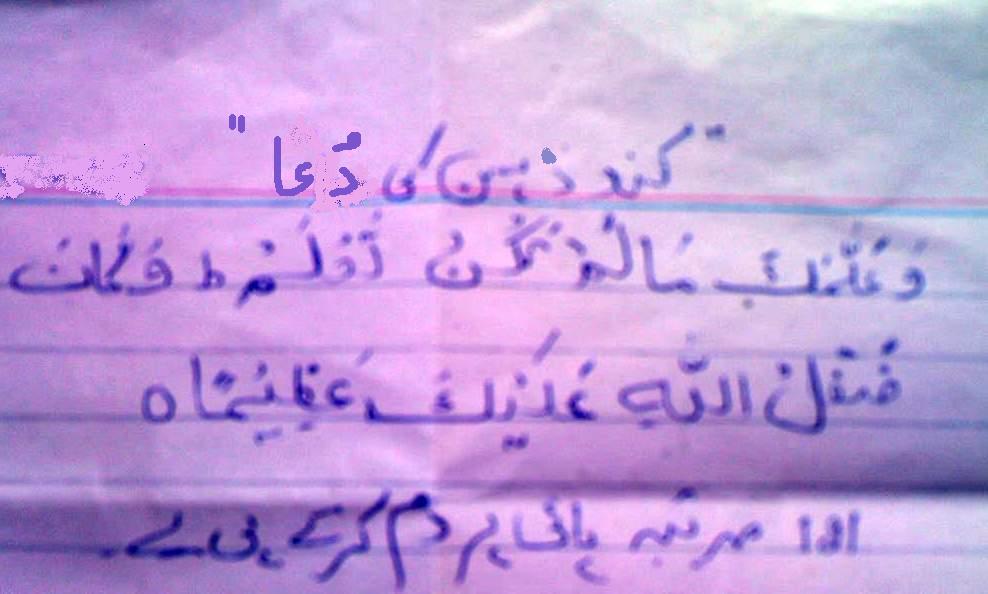 "کند ذہن کی دُعا"
وَعَلَّمَكَ مَالَمْ تَكُنْ تَعْلَمُ ط وَكَانَ
فَضْلُ اللّٰهِ عَلَيْكَ عَظِيْمًا ه
١١١ مرتبہ پانی پر دم کرکے پی لے۔